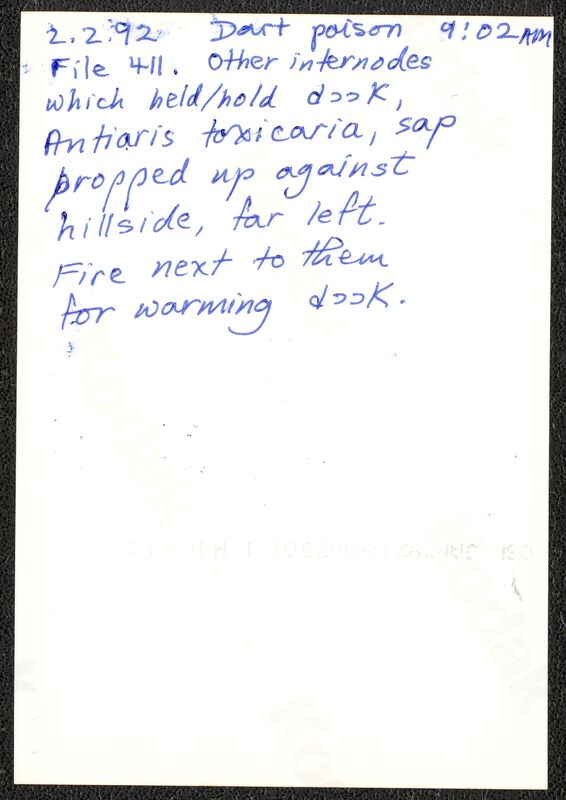 2.2.92 Dart poison 9:02 AM
File 411. Other internodes
which held/hold dɔɔK,
Antiaris toxicaria, sap
propped up against
hillside, far left.
Fire next to them
for warming dɔɔK.
Kodak
Kodak
Kodak